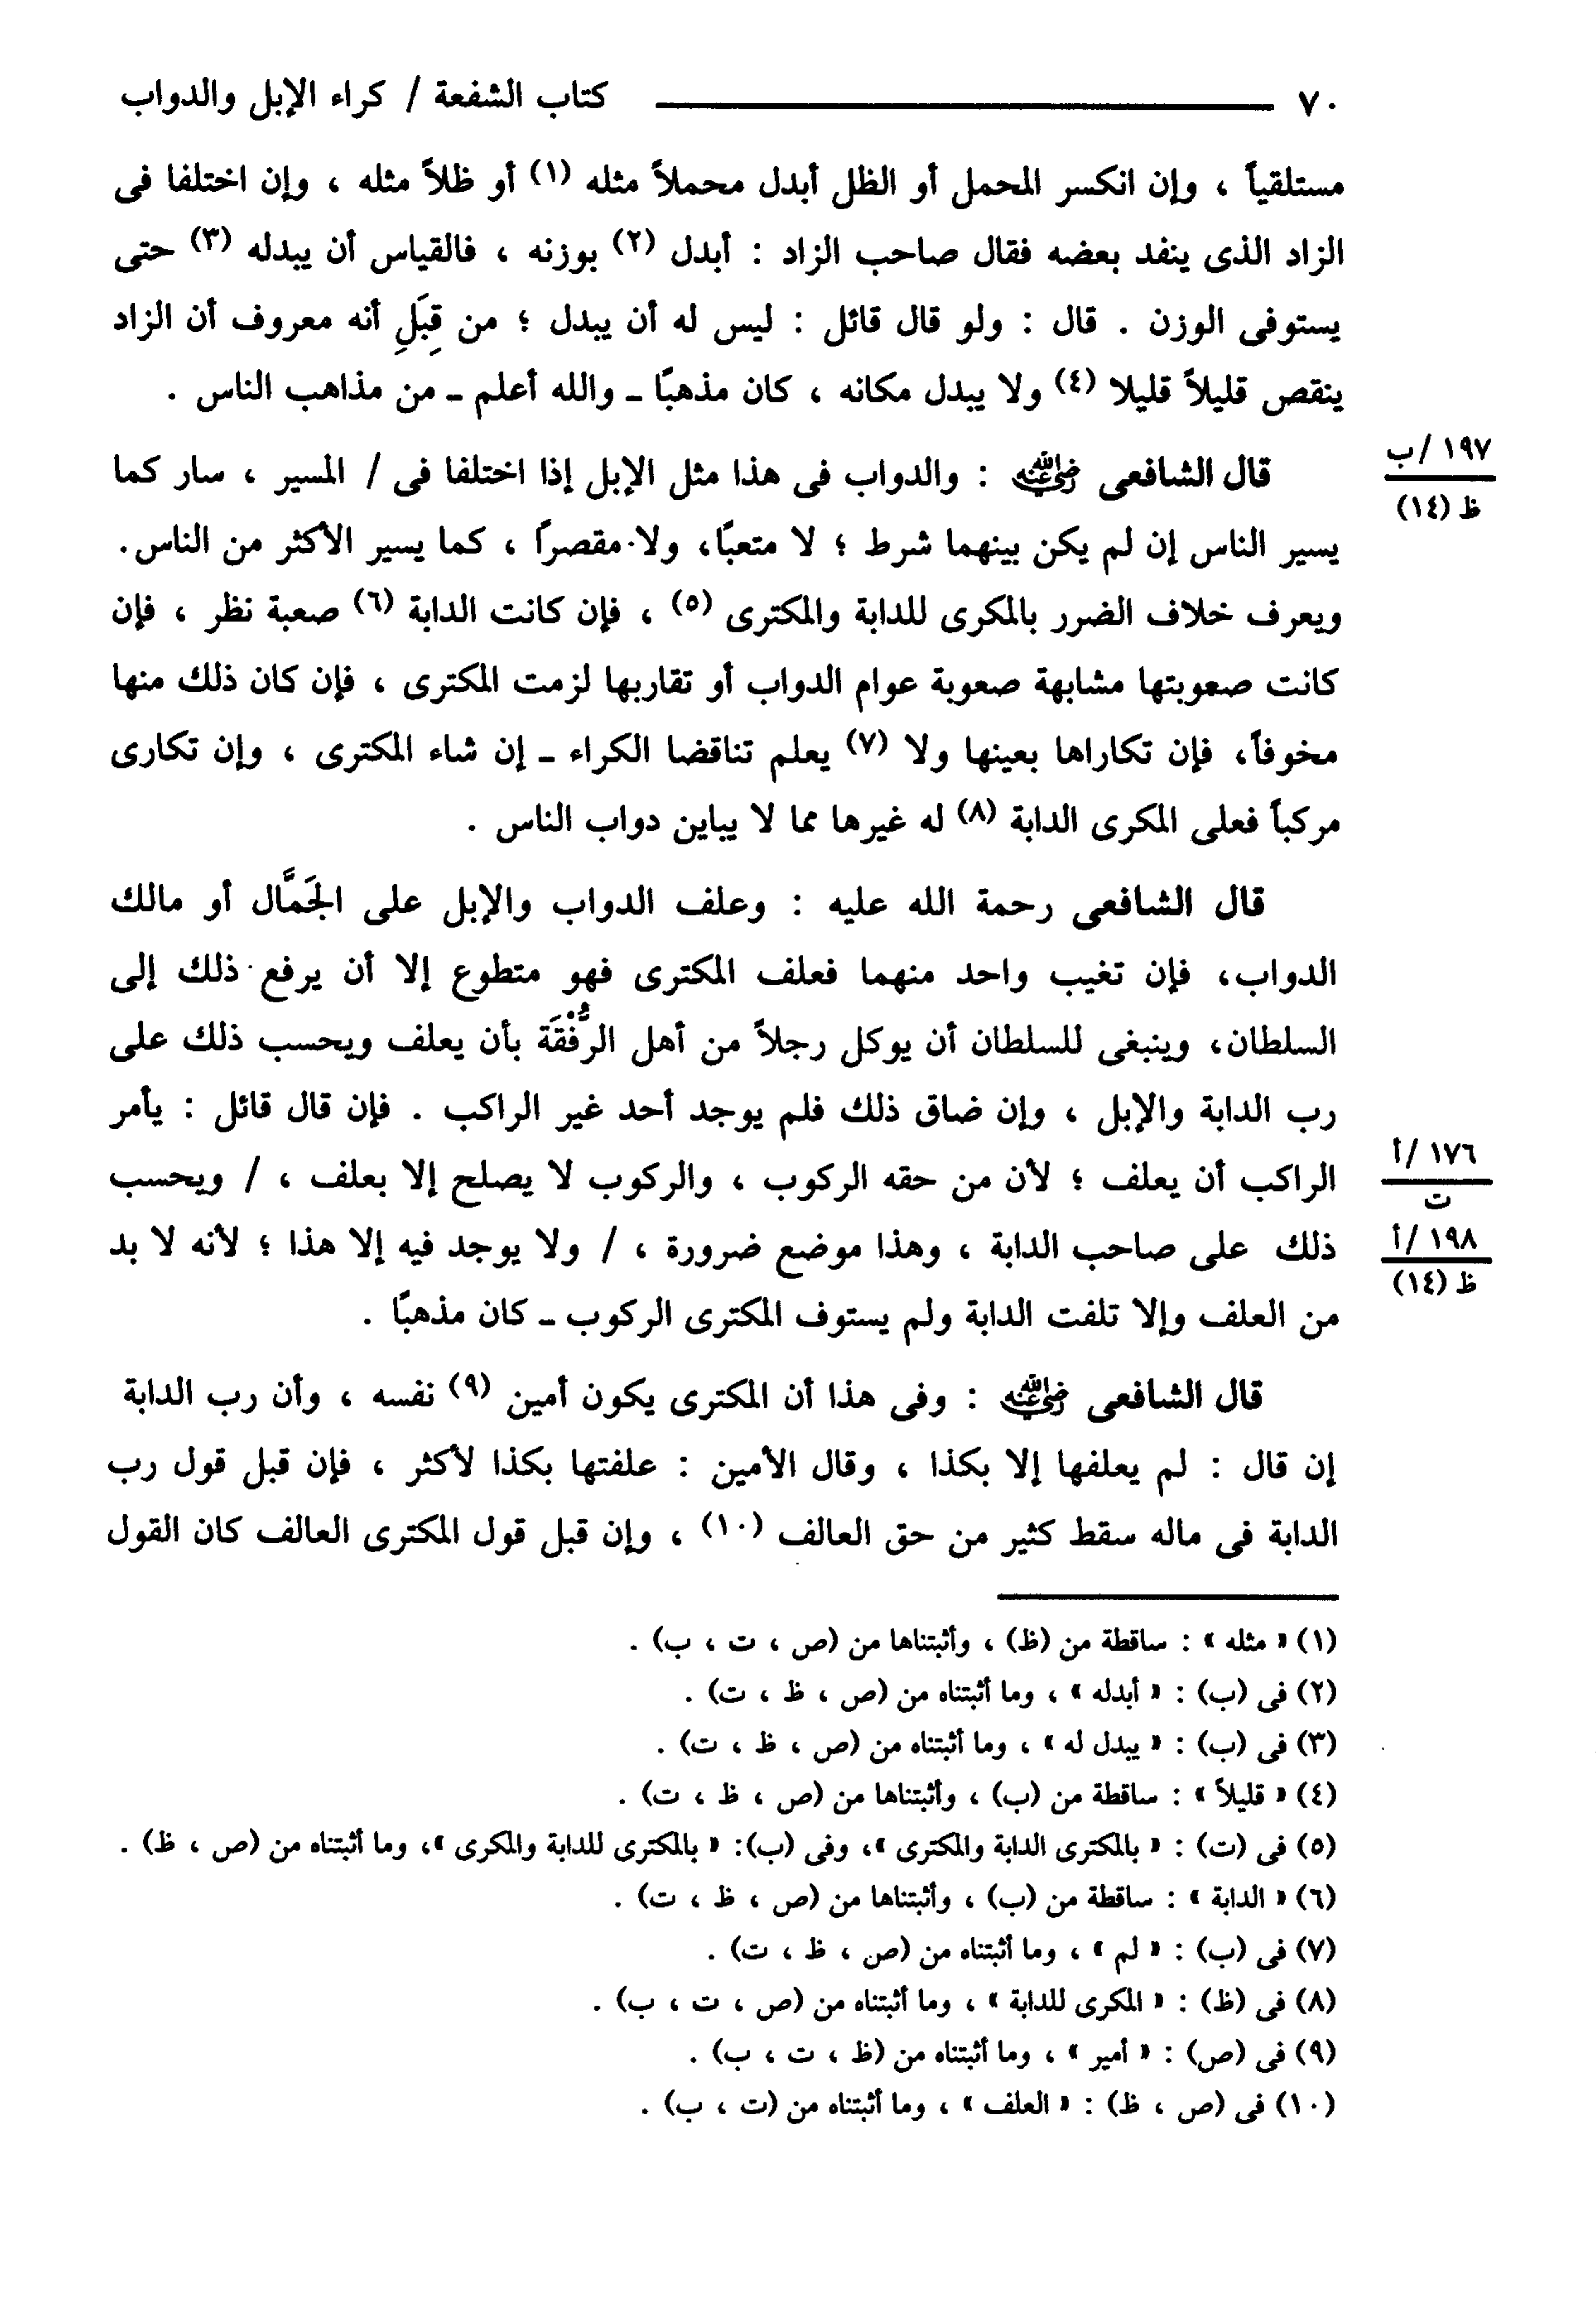 ٧٠ كتاب الشفعة / كراء الإبل والدواب
مستلقياً ، وإن انكسر المحمل أو الظل أبدل محملاً مثله (١) أو ظلاً مثله ، وإن اختلفا فى
الزاد الذى ينفد بعضه فقال صاحب الزاد : أبدل (٢) بوزنه ، فالقياس أن يبدله (٣) حتى
يستوفى الوزن . قال : ولو قال قائل : ليس له أن يبدل ؛ من قِبَلِ أنه معروف أن الزاد
ينقص قليلاً قليلا (٤) ولا يبدل مكانه ، كان مذهبًا ـ والله أعلم ـ من مذاهب الناس .
قال الشافعى رضي الله عنه : والدواب فى هذا مثل الإبل إذا اختلفا فى / المسير ، سار كما
١٩٧ /ب
ظ (١٤)
يسير الناس إن لم يكن بينهما شرط ؛ لا متعبًا، ولا مقصراً ، كما يسير الأكثر من الناس.
ويعرف خلاف الضرر بالمكرى للدابة والمكترى (٥) ، فإن كانت الدابة (٦) صعبة نظر ، فإن
كانت صعوبتها مشابهة صعوبة عوام الدواب أو تقاربها لزمت المكترى ، فإن كان ذلك منها
مخوفاً، فإن تكاراها بعينها ولا (٧) يعلم تناقضا الكراء ـ إن شاء المكترى ، وإن تكارى
مركباً فعلى المكرى الدابة (٨) له غيرها مما لا يباين دواب الناس .
قال الشافعى رحمة الله عليه : وعلف الدواب والإبل على الجَمَّال أو مالك
الدواب، فإن تغيب واحد منهما فعلف المكترى فهو متطوع إلا أن يرفع ذلك إلى
السلطان، وينبغى للسلطان أن يوكل رجلاً من أهل الرُّفْقَة بأن يعلف ويحسب ذلك على
رب الدابة والإبل ، وإن ضاق ذلك فلم يوجد أحد غير الراكب . فإن قال قائل : يأمر
الراكب أن يعلف ؛ لأن من حقه الركوب ، والركوب لا يصلح إلا بعلف ، / ويحسب
١٧٦ /أ
ت
ذلك على صاحب الدابة ، وهذا موضع ضرورة ، / ولا يوجد فيه إلا هذا ؛ لأنه لا بد
١٩٨ /أ
ظ (١٤)
من العلف وإلا تلفت الدابة ولم يستوف المكترى الركوب ـ كان مذهبًا .
قال الشافعى رضي الله عنه : وفى هذا أن المكترى يكون أمين (٩) نفسه ، وأن رب الدابة
إن قال : لم يعلفها إلا بكذا ، وقال الأمين : علفتها بكذا لأكثر ، فإن قبل قول رب
الدابة فى ماله سقط كثير من حق العالف (١٠) ، وإن قبل قول المكترى العالف كان القول
(١) « مثله » : ساقطة من (ظ) ، وأثبتناها من (ص ، ت ، ب) .
(٢) فى (ب) : « أبدله » ، وما أثبتناه من (ص ، ظ ، ت) .
(٣) فى (ب) : « يبدل له » ، وما أثبتناه من (ص ، ظ ، ت) .
(٤) « قليلاً » : ساقطة من (ب) ، وأثبتناها من (ص ، ظ ، ت) .
(٥) فى (ت) : « بالمكترى الدابة والمكترى »، وفى (ب): « بالمكترى للدابة والمكرى »، وما أثبتناه من (ص ، ظ) .
(٦) « الدابة » : ساقطة من (ب) ، وأثبتناها من (ص ، ظ ، ت) .
(٧) فى (ب) : « لم » ، وما أثبتناه من (ص ، ظ ، ت) .
(٨) فى (ظ) : « المكرى للدابة » ، وما أثبتناه من (ص ، ت ، ب) .
(٩) فى (ص) : « أمير » ، وما أثبتناه من (ظ ، ت ، ب) .
(١٠) فى (ص ، ظ) : « العلف » ، وما أثبتناه من (ت ، ب) .